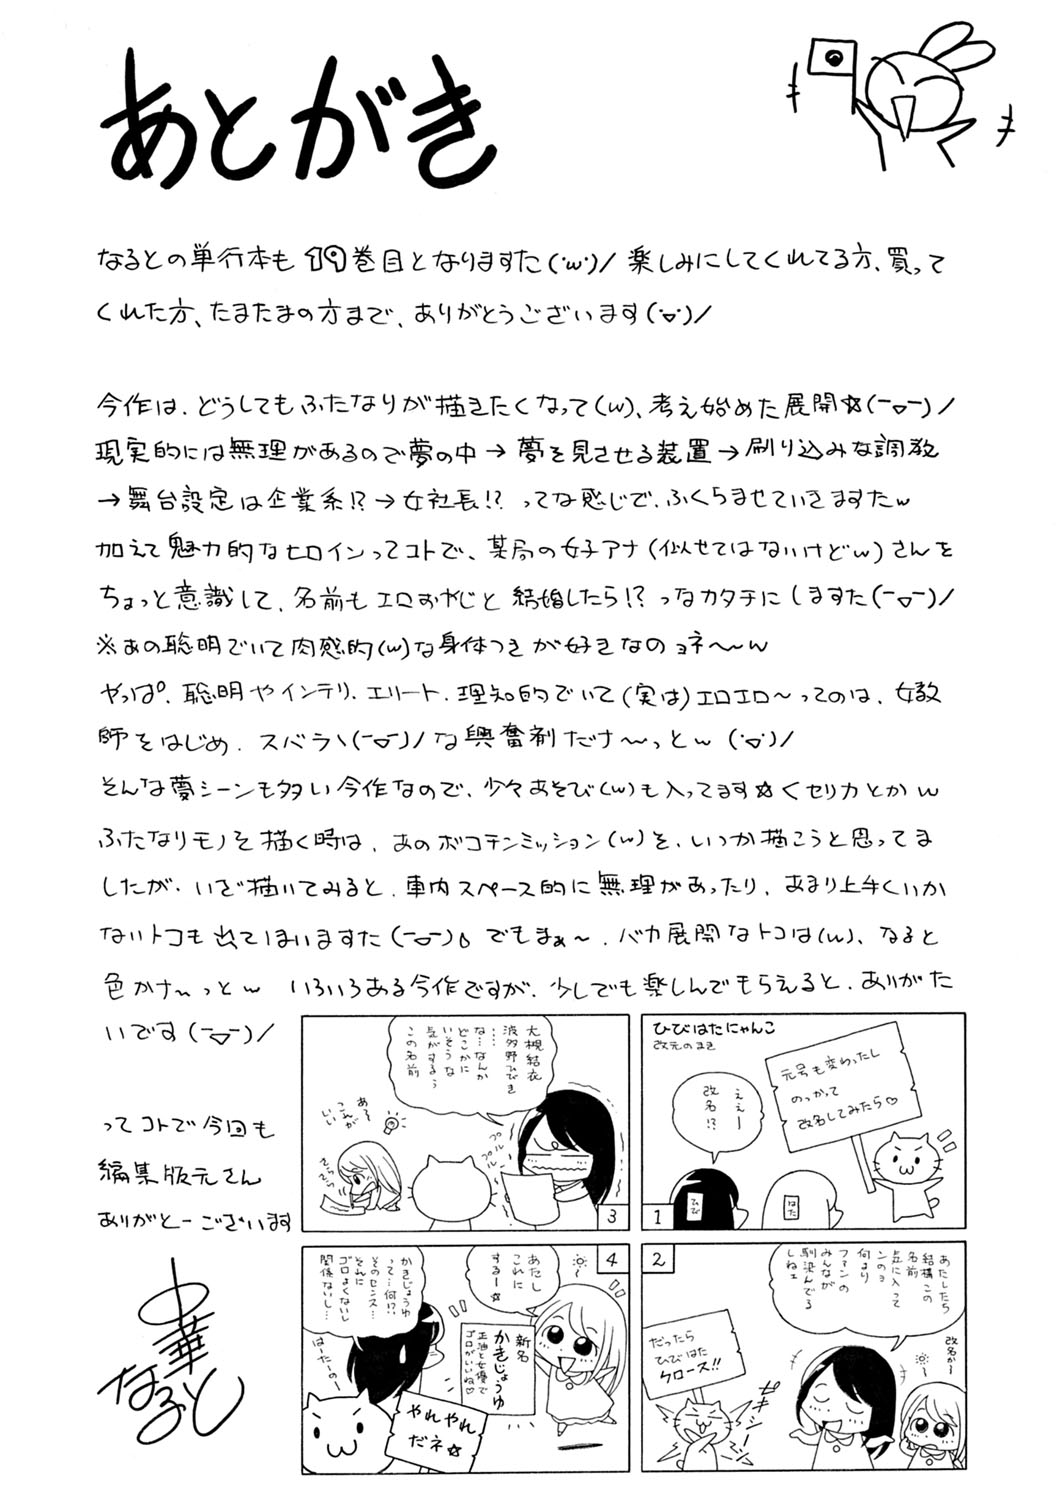 あとがき
なるとの単行本も19巻目となりますた(･ω･)/ 楽しみにしてくれてる方、買って
くれた方、たまたまの方まで、ありがとうございます(･▽･)/
今作は、どうしてもふたなりが描きたくなって(w)、考え始めた展開☆(ー▽ー)/
現実的には無理があるので夢の中→夢を見させる装置→刷り込みな調教
→舞台設定は企業系!?→女社長!? ってな感じで、ふくらませていきますたw
加えて魅力的なヒロインってコトで、某局の女子アナ(似せてはないけどw)さんを
ちょっと意識して、名前もエロおやじと結婚したら!? っなカタチにしますた(ー▽ー)/
※あの聡明でいて肉感的(w)な身体つきが好きなのョネ〜〜w
やっぱ、聡明やインテリ、エリート、理知的でいて(実は)エロエロ〜ってのは、女教
師をはじめ、スバラヽ(ー▽ー)/な興奮剤だナ〜っとw (･▽･)/
そんな夢シーンも多い今作なので、少々あそび(w)も入ってます☆くセリカとかw
ふたなりモノを描く時は、あのボコチンミッション(w)を、いつか描こうと思ってま
したが、いざ描いてみると、車内スペース的に無理があったり、あまり上手くいか
ないトコも出てしまいますた(ー▽ー)。でもまぁ〜、バカ展開なトコは(w)、なると
色かナ〜っとw いろいろある今作ですが、少しでも楽しんでもらえると、ありがた
いです(ー▽ー)/
ってコトで今回も
編集版元さん
ありがとーございます
中華
なると
ひびはたにゃんこ
改元のまき
元号も変わったし
のっかって
改名してみたら♡
ええー
改名!?
はた
ひび
1
あたしたち
結構この
名前
気に入って
ンのョ
何より
ファンの
みんなが
馴染んでる
しねェ
改名かー
だったら
ひびはた
クロース!!
2
大槻結衣
波多野ひびき
……
な…なんか
どこかに
いそうな
気がするぅ
この名前
プルプルプル
ある
こんなが
いい
3
あたし
これに
するー☆
新名
かきじょうゆ
正油と女優で
ゴロがいいね♡
かきじょうゆ
って…何!?
そのセンス…
それに
ゴロよくないし
関係ないし…
はーたの…
やれやれ
だネ☆
4